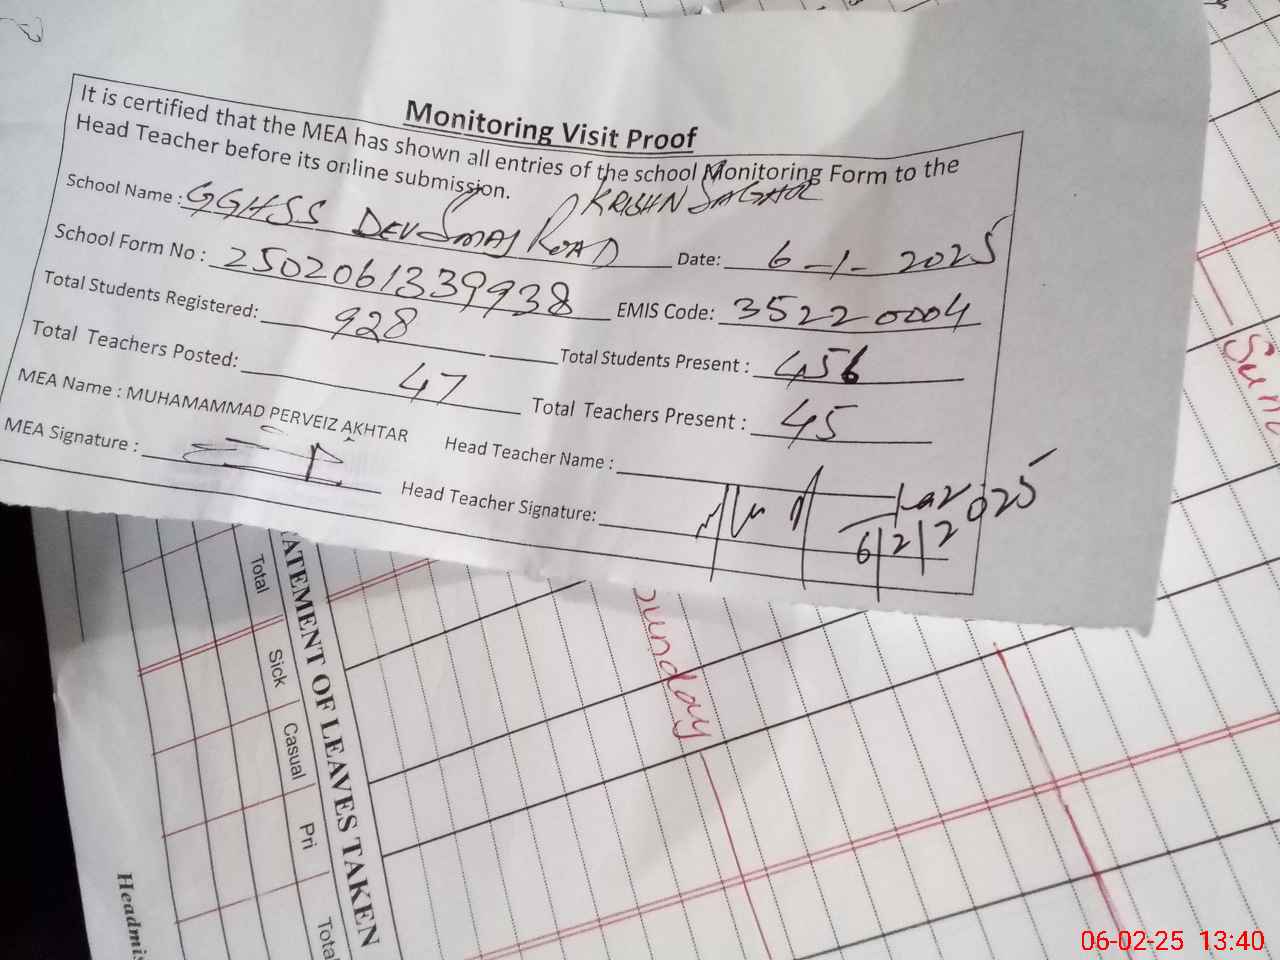 Monitoring Visit Proof
It is certified that the MEA has shown all entries of the school Monitoring Form to the
Head Teacher before its online submission.
KRISHN
School Name : GGHSS DEV SMAJ ROAD Date: 6-1-2025
School Form No : 2502061339938 EMIS Code: 35220004
Total Students Registered: 928 Total Students Present : 456
Total Teachers Posted: 47 Total Teachers Present : 45
MEA Name : MUHAMAMMAD PERVEIZ AKHTAR Head Teacher Name :
MEA Signature : Head Teacher Signature:
6/2/2025
Sunday
STATEMENT OF LEAVES TAKEN
Total
Sick
Casual
Pri
Total
06-02-25 13:40